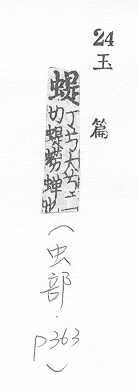 24 玉篇
蝭丁兮大兮二
切蝭蟧蟬也
(虫部·p363)